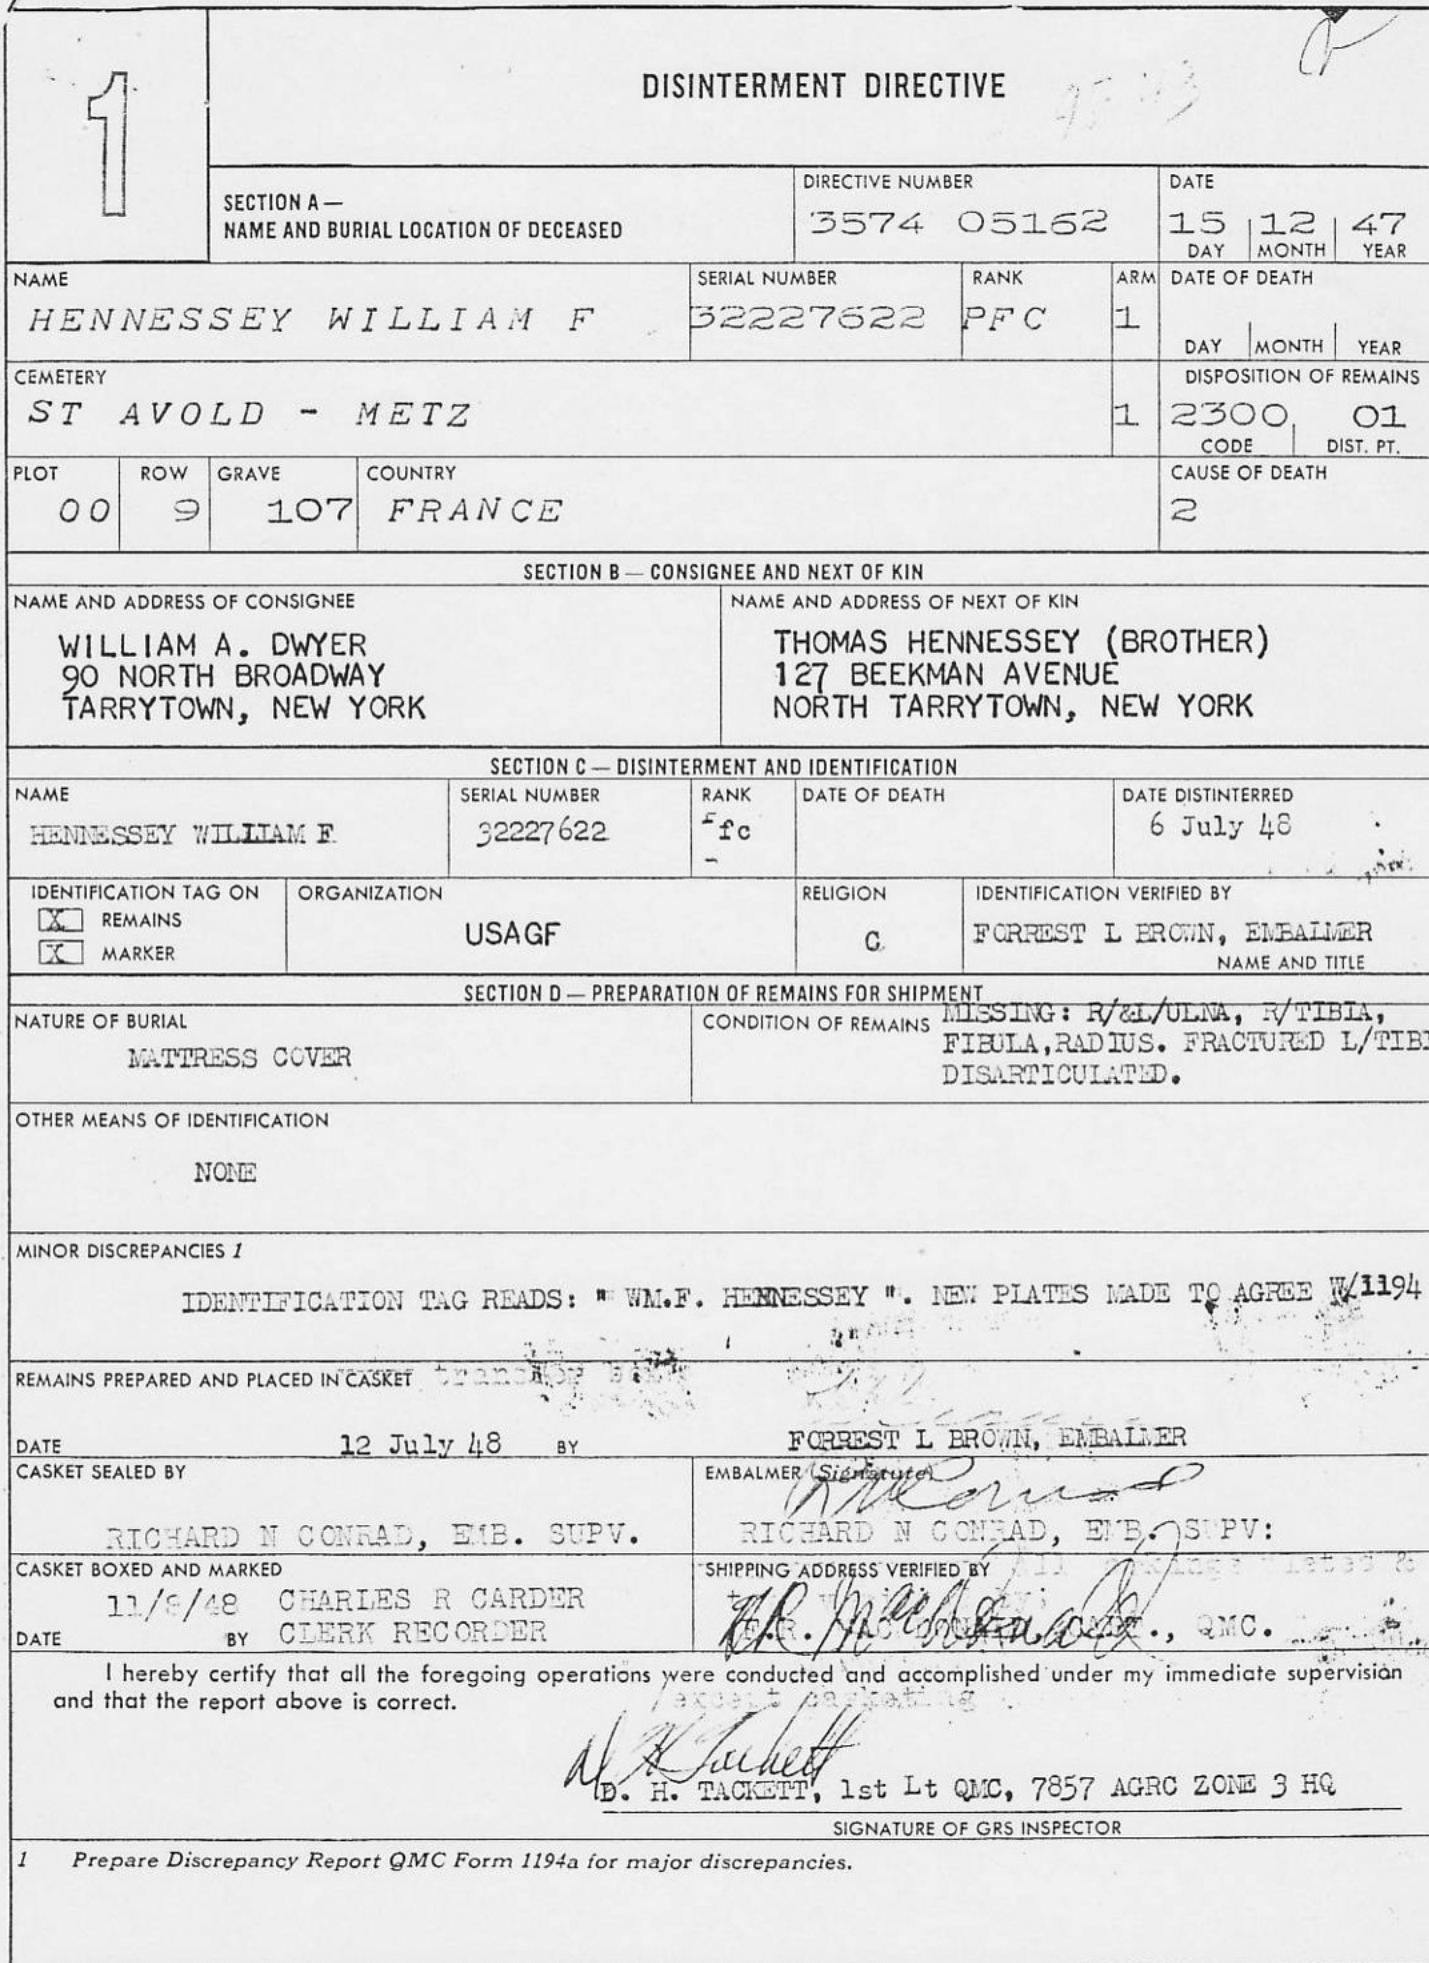 1
DISINTERMENT DIRECTIVE
SECTION A —
NAME AND BURIAL LOCATION OF DECEASED
DIRECTIVE NUMBER
3574 05162
DATE
15 12 47
DAY MONTH YEAR
NAME
HENNESSEY WILLIAM F
SERIAL NUMBER
32227622
RANK
PFC
ARM
1
DATE OF DEATH
DAY MONTH YEAR
CEMETERY
ST AVOLD - METZ
1
DISPOSITION OF REMAINS
2300 01
CODE DIST. PT.
PLOT
00
ROW
9
GRAVE
107
COUNTRY
FRANCE
CAUSE OF DEATH
2
SECTION B — CONSIGNEE AND NEXT OF KIN
NAME AND ADDRESS OF CONSIGNEE
WILLIAM A. DWYER
90 NORTH BROADWAY
TARRYTOWN, NEW YORK
NAME AND ADDRESS OF NEXT OF KIN
THOMAS HENNESSEY (BROTHER)
127 BEEKMAN AVENUE
NORTH TARRYTOWN, NEW YORK
SECTION C — DISINTERMENT AND IDENTIFICATION
NAME
HENNESSEY WILLIAM F
SERIAL NUMBER
32227622
RANK
fc
DATE OF DEATH
DATE DISTINTERRED
6 July 48
IDENTIFICATION TAG ON
X REMAINS
X MARKER
ORGANIZATION
USAGF
RELIGION
C
IDENTIFICATION VERIFIED BY
FORREST L BROWN, EMBALMER
NAME AND TITLE
SECTION D — PREPARATION OF REMAINS FOR SHIPMENT
NATURE OF BURIAL
MATTRESS COVER
CONDITION OF REMAINS MISSING: R/&L/ULNA, R/TIBIA,
FIBULA,RADIUS. FRACTURED L/TIBI
DISARTICULATED.
OTHER MEANS OF IDENTIFICATION
NONE
MINOR DISCREPANCIES 1
IDENTIFICATION TAG READS: " WM.F. HENNESSEY ". NEW PLATES MADE TO AGREE W/1194
REMAINS PREPARED AND PLACED IN CASKET
DATE 12 July 48 BY FORREST L BROWN, EMBALMER
CASKET SEALED BY
RICHARD N CONRAD, EMB. SUPV.
EMBALMER (Signature)
RICHARD N CONRAD, EMB. SUPV:
CASKET BOXED AND MARKED
11/8/48 CHARLES R CARDER
DATE BY CLERK RECORDER
SHIPPING ADDRESS VERIFIED BY
QMC.
I hereby certify that all the foregoing operations were conducted and accomplished under my immediate supervision
and that the report above is correct.
except casketing
D. H. TACKETT, 1st Lt QMC, 7857 AGRC ZONE 3 HQ
SIGNATURE OF GRS INSPECTOR
1 Prepare Discrepancy Report QMC Form 1194a for major discrepancies.